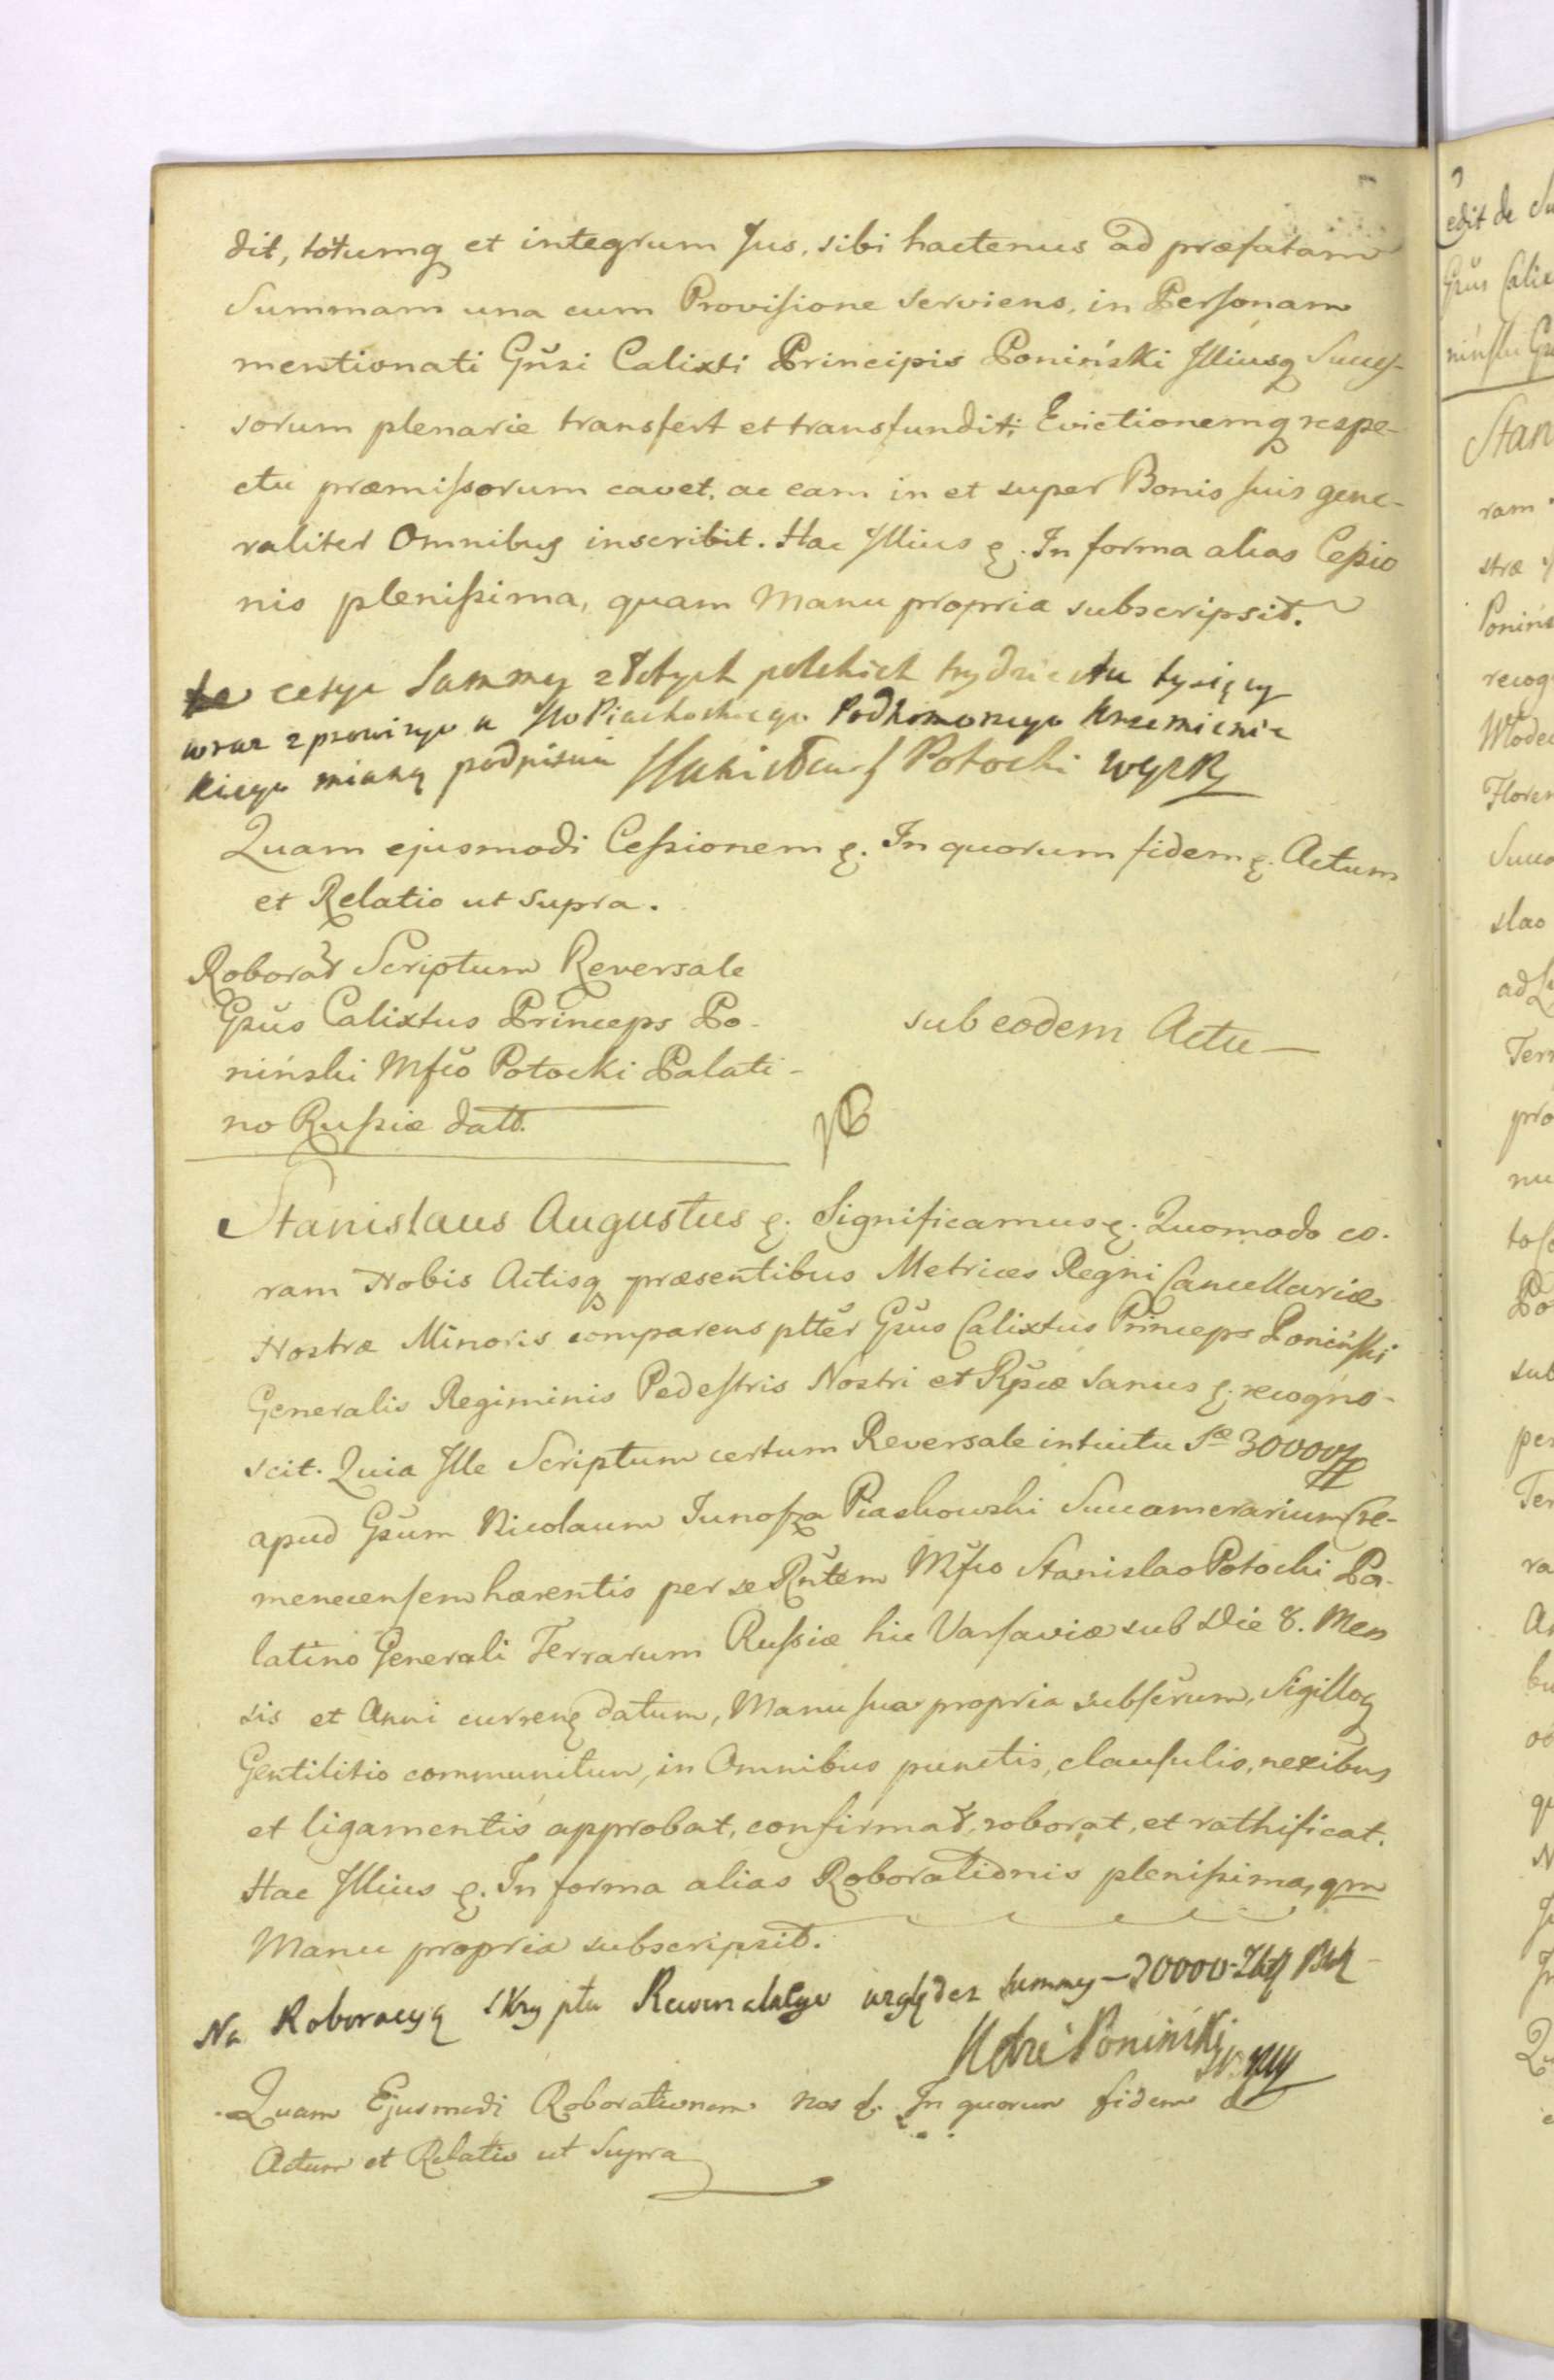 dit, totumq et integrum Jus, sibi hactenus ad præfatam
Summam una cum Provisione serviens, in Personam
mentionati Gnsi Calixti Principis Poniński Illiusq Succes-
sorum plenarie transfert et transfundit; Evictionemq respe-
ctu præmissorum cavet, ac eam in et super Bonis suis gene-
raliter Omnibus inscribit. Hac Illius &. In forma alias Cessio
nis plenissima, quam Manu propria subscripsit.
te cesye Summy złotych polskich trydziestu tysięcy
wraz z prowizyo u JW Piaskoskiego Podkomorzego krzemienie
kiego mianą podpisuie Stanisław S Potocki WZR
Quam ejusmodi Cessionem &. In quorum fidem &. Actum
et Relatio ut supra.
Roborat Scriptum Reversale
Gsus Calixtus Princeps Po-
niński Mfco Potocki Palati-
no Russiæ datt.
sub eodem Actu
Stanislaus Augustus &. Significamus &. Quomodo co-
ram Nobis Actisq præsentibus Metrices Regni Cancellariæ
Nostræ Minoris comparens pltter Gsus Calixtus Princeps Poniński
Generalis Regiminis Pedestris Nostri et Rpcæ sanus &. recogno-
scit. Quia Ille Scriptum certum Reversale intuitu Sæ 30000
apud Gsum Nicolaum Junosza Piaskowski Succamerarium Cre-
menecensem hærentis per se Rntem Mfco Stanislao Potocki Pa-
latino Generali Terrarum Russiæ hic Varsaviæ sub Die 8. Men
sis et Anni curren datum, Manu sua propria subscrum, Sigilloq
Gentilitio communitum, in Omnibus punctis, clausulis, nexibus
et ligamentis approbat, confirmat, roborat, et rathificat.
Hac Illius &. In forma alias Roborationis plenissima, qm
Manu propria subscripsit.
Na Roboracyą skryptu Rewersalnego względez summy 30000
Poniński
Quam Ejusmodi Roborationem nos &. In quorum fidem &
Actum et Relatio ut Supra